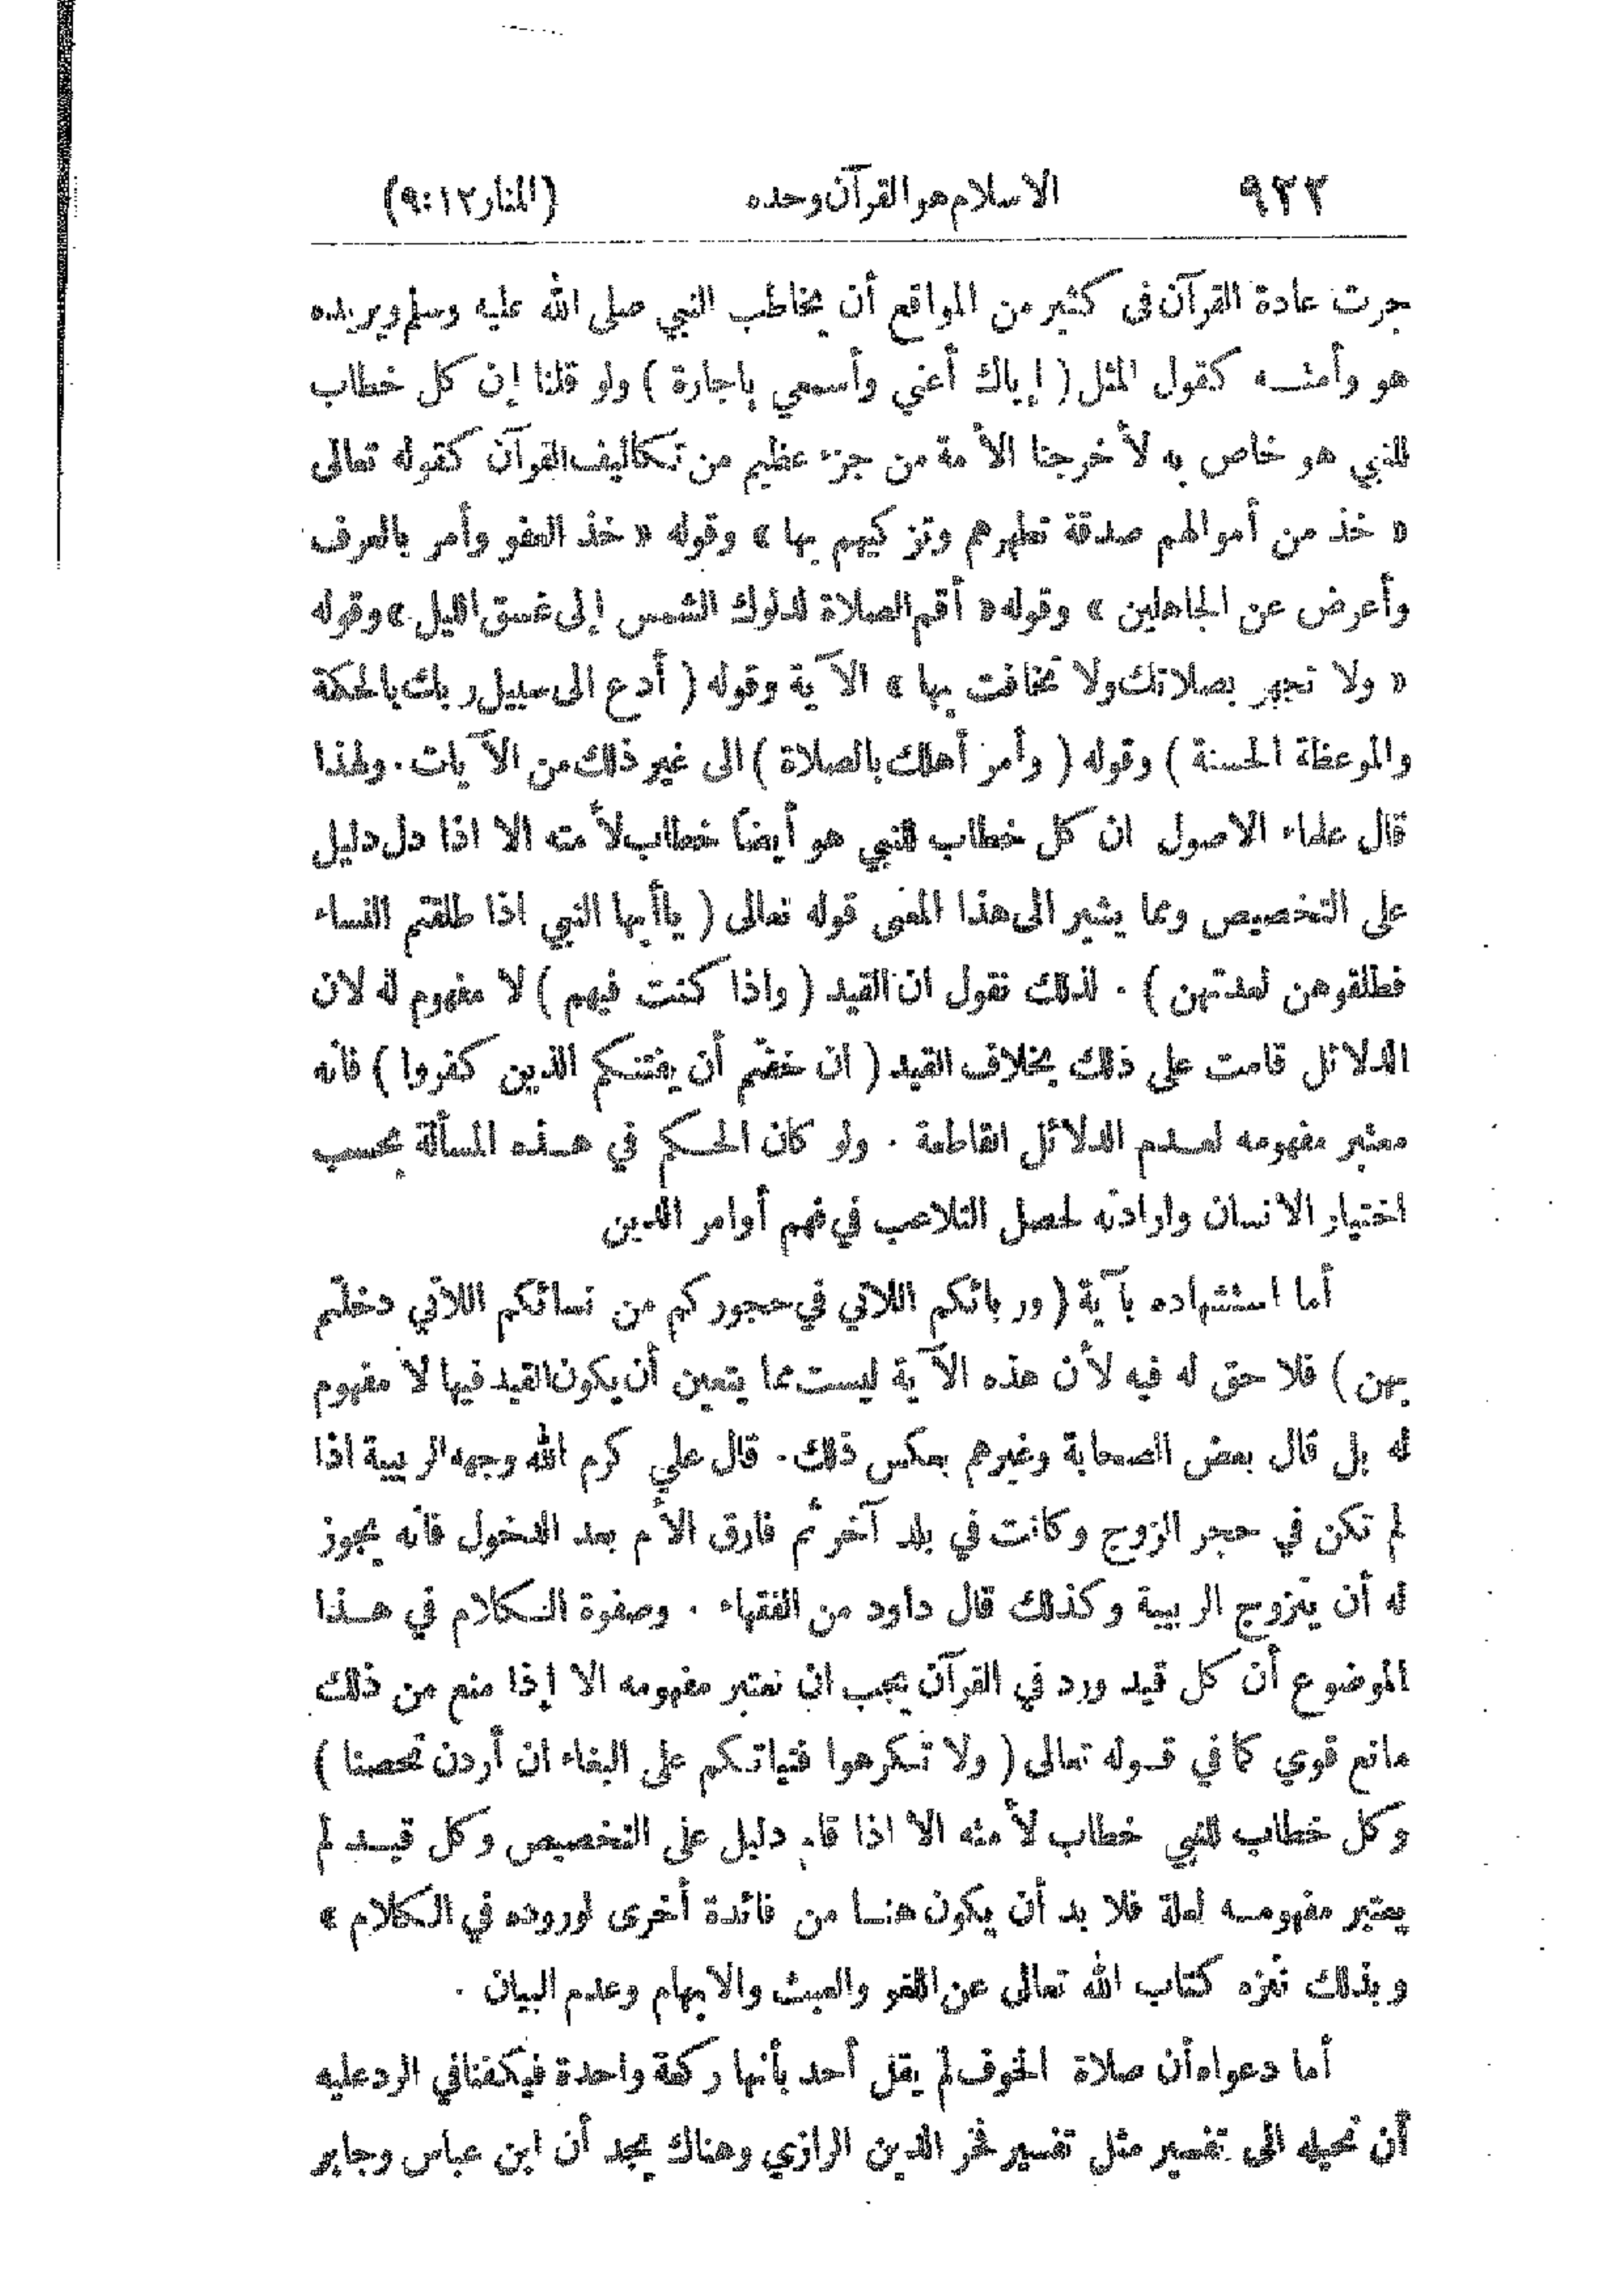 ٩٢٢ الاسلام هو القرآن وحده (المنار ١٢:٩)
جرت عادة القرآن فى كثير من المواقع أن يخاطب النبي صلى الله عليه وسلم ويريده
هو وأمته كقول المثل ( إياك أعني وأسمعي ياجارة ) ولو قلنا إن كل خطاب
للنبي هو خاص به لأخرجنا الأمة من جزء عظيم من تكاليف القرآن كقوله تعالى
« خذ من أموالهم صدقة تطهرهم وتزكيهم بها » وقوله « خذ العفو وأمر بالعرف
وأعرض عن الجاهلين » وقوله « أقم الصلاة لدلوك الشمس إلى غسق الليل » وقوله
« ولا تجهر بصلاتك ولا تخافت بها » الآية وقوله ( أدع الى سبيل ربك بالحكمة
والموعظة الحسنة ) وقوله ( وأمر أهلك بالصلاة ) الى غير ذلك من الآيات . ولهذا
قال علماء الاصول ان كل خطاب للنبي هو أيضاً خطاب لأمته الا اذا دل دليل
على التخصيص ومما يشير الى هذا المعنى قوله تعالى ( ياأيها النبي اذا طلقتم النساء
فطلقوهن لعدتهن ) . لذلك نقول ان القيد ( واذا كنت فيهم ) لا مفهوم له لان
الدلائل قامت على ذلك بخلاف القيد ( ان خفتم أن يفتنكم الذين كفروا ) فانه
معتبر مفهومه لعدم الدلائل القاطعة . ولو كان الحكم في هذه المسألة بحسب
اختيار الانسان وارادته لحصل التلاعب في فهم أوامر الدين
أما استشهاده بآية ( وربائبكم اللاتي في حجوركم من نسائكم اللاتي دخلتم
بهن ) فلا حق له فيه لأن هذه الآية ليست مما يتعين أن يكون القيد فيها لا مفهوم
له بل قال بعض الصحابة وغيرهم بعكس ذلك . قال علي كرم الله وجهه الربيبة اذا
لم تكن في حجر الزوج وكانت في بلد آخر ثم فارق الأم بعد الدخول فانه يجوز
له أن يتزوج الربيبة وكذلك قال داود من الفقهاء . وصفوة الكلام في هذا
الموضوع أن كل قيد ورد في القرآن يجب ان نعتبر مفهومه الا إذا منع من ذلك
مانع قوي كما في قوله تعالى ( ولا تكرهوا فتياتكم على البغاء ان أردن تحصنا )
وكل خطاب للنبي خطاب لأمته الا اذا قام دليل على التخصيص وكل قيد لم
يعتبر مفهومه لعلة فلا بد أن يكون هنا من فائدة أخرى لوروده في الكلام »
وبذلك ننزه كتاب الله تعالى عن اللغو والعبث والابهام وعدم البيان .
أما دعواه أن صلاة الخوف لم يقل أحد بأنها ركعة واحدة فيكفنا في الرد عليه
أن نحيله الى تفسير مثل تفسير فخر الدين الرازي وهناك يجد أن ابن عباس وجابر